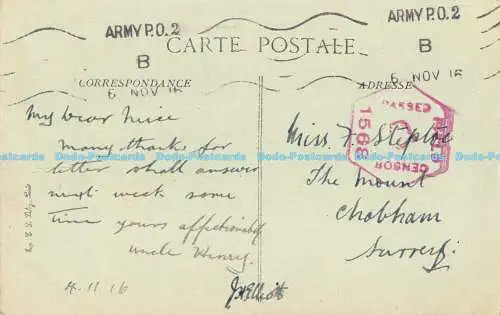 ARMY P.O. 2
B
6 NOV 16
ARMY P.O. 2
B
6 NOV 16
CARTE POSTALE
CORRESPONDANCE
ADRESSE
My Dear Niece
Many thanks for
letter shall answer
next week some
time yours affectionately
uncle Henry.
4.11.16
JHElliott
Miss F. Steptoe
The Mount
Chobham
Surrey.
PASSED
FIELD
CENSOR
1568
Dodo-Postcards Dodo-Postcards Dodo-Postcards Dodo-Postcards